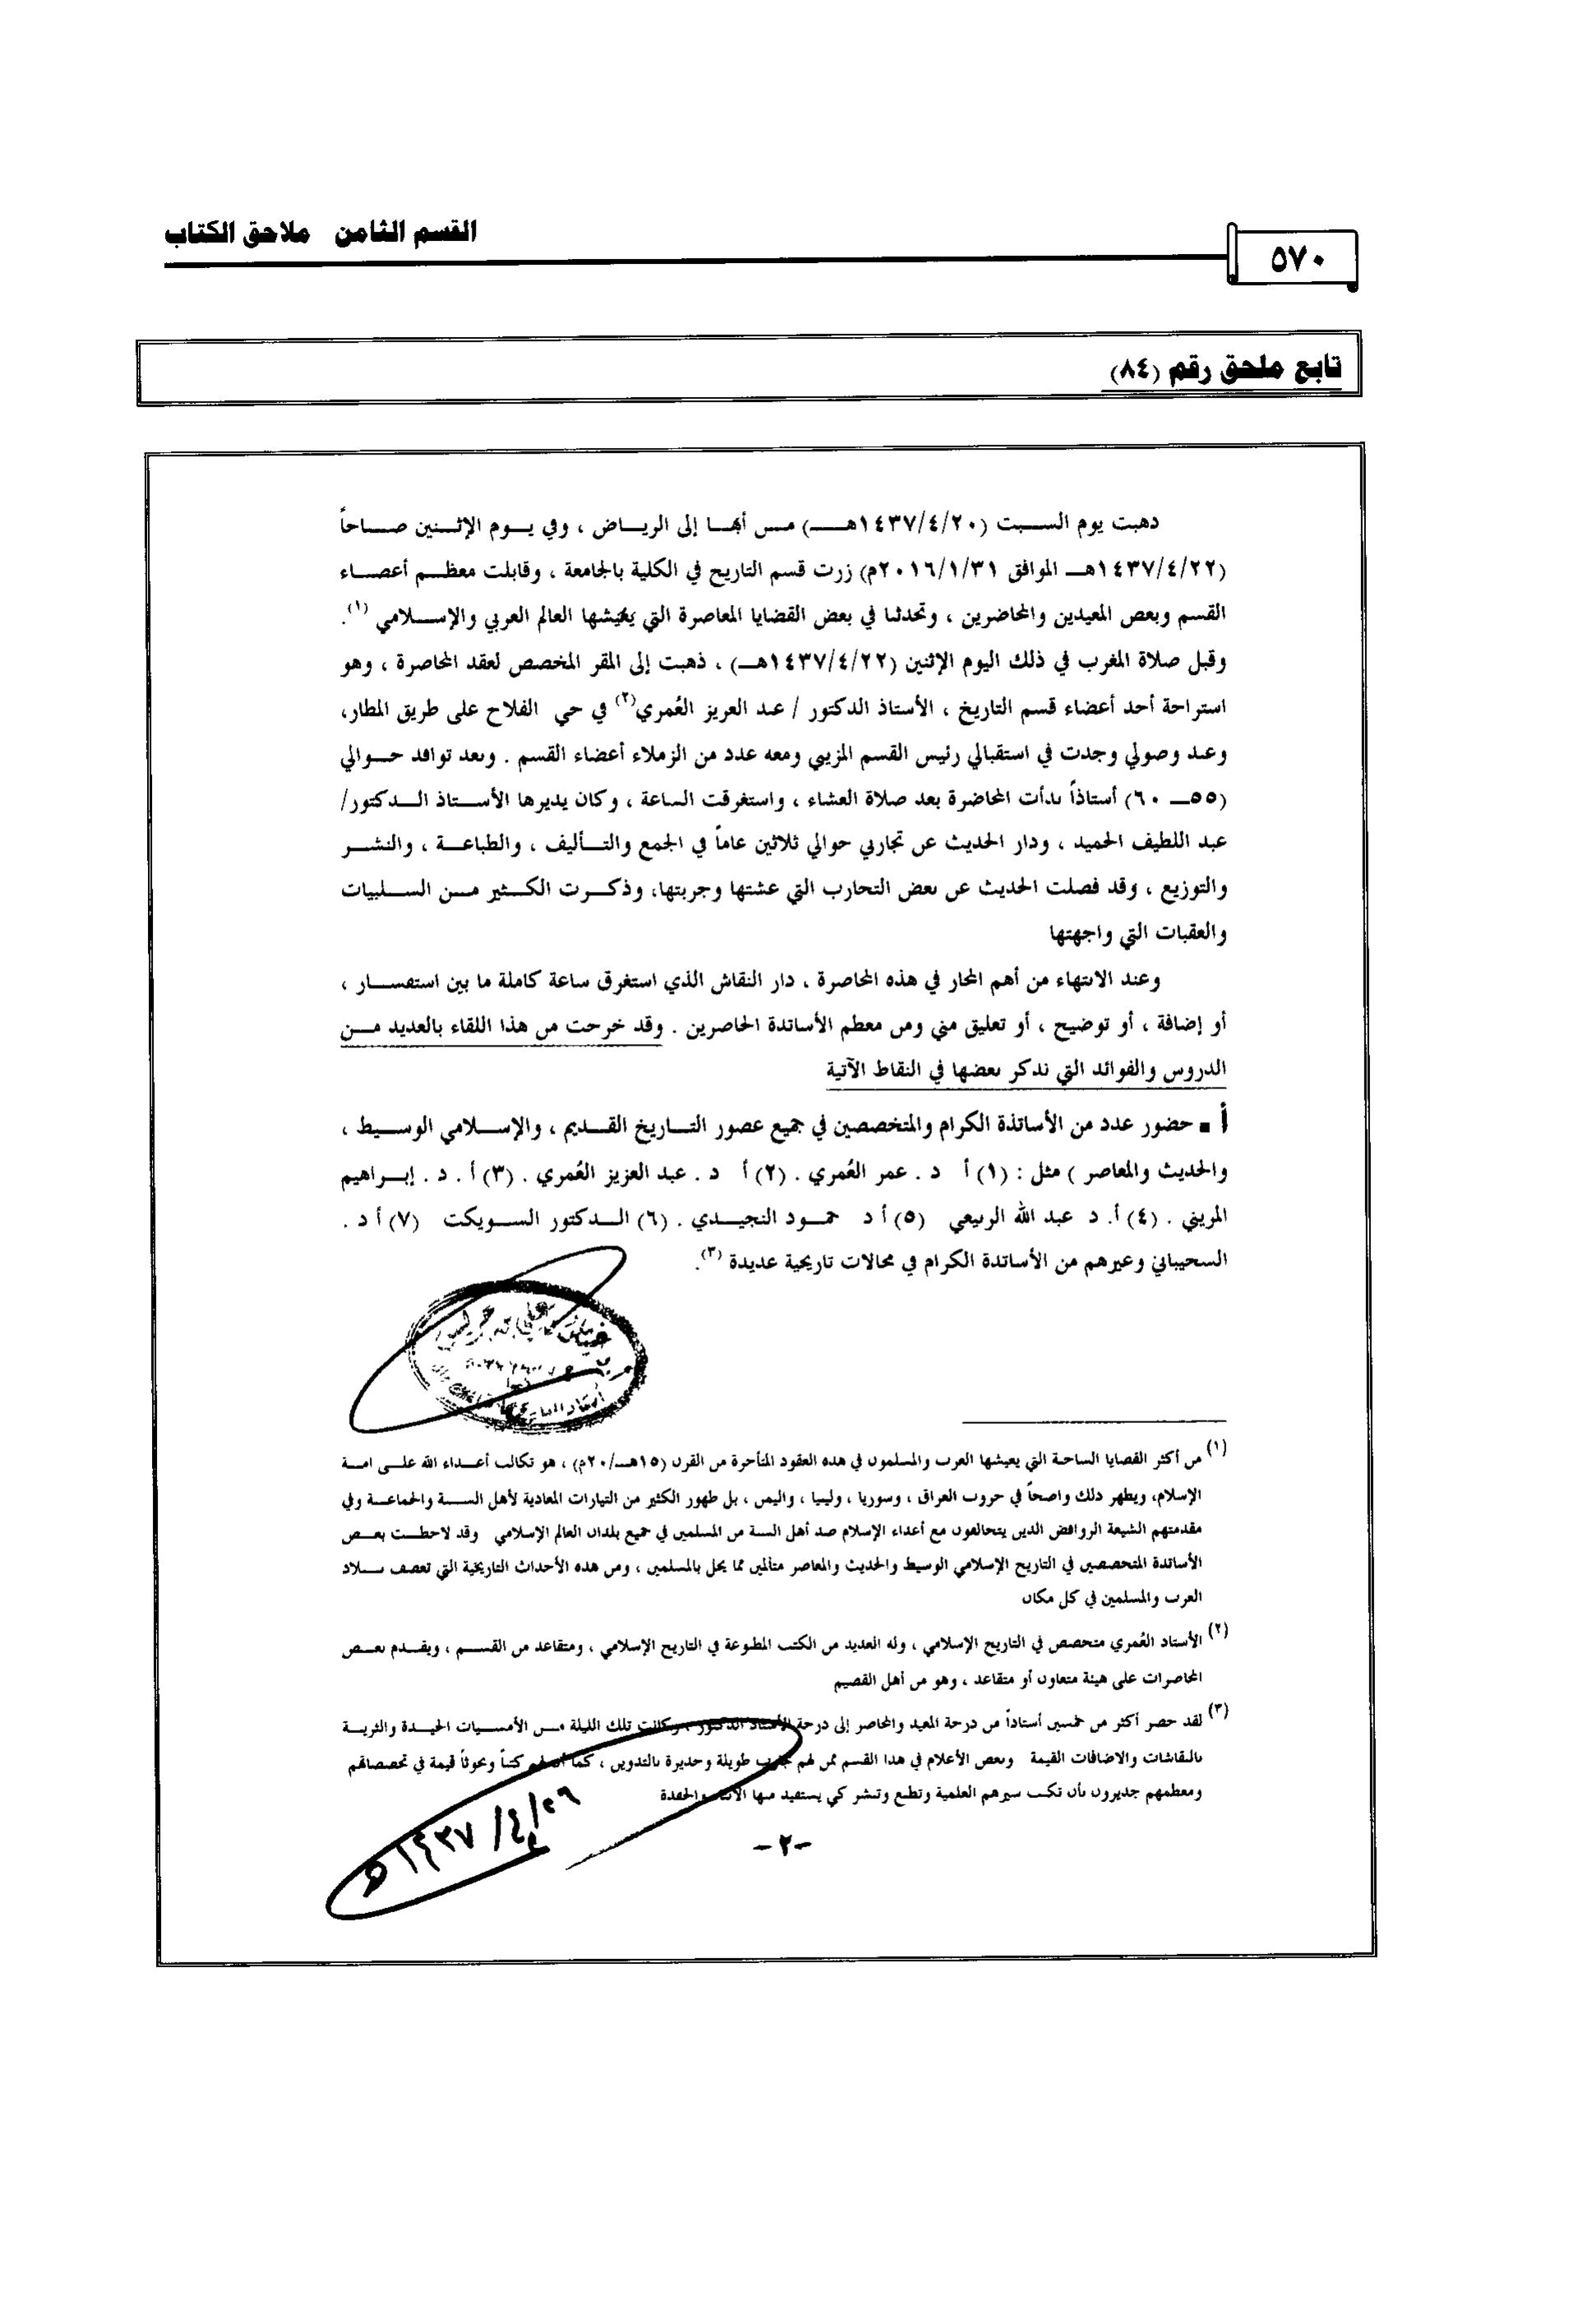 القسم الثامن ملاحق الكتاب
٥٧٠
تابع ملحق رقم (٨٤)
ذهبت يوم السبت (١٤٣٧/٤/٢٠هـ) من أبها إلى الرياض ، وفي يوم الإثنين صباحاً
(١٤٣٧/٤/٢٢هـ الموافق ٢٠١٦/١/٣١م) زرت قسم التاريخ في الكلية بالجامعة ، وقابلت معظم أعضاء
القسم وبعض المعيدين والمحاضرين ، وتحدثنا في بعض القضايا المعاصرة التي يعيشها العالم العربي والإسلامي (١).
وقبل صلاة المغرب في ذلك اليوم الإثنين (١٤٣٧/٤/٢٢هـ) ، ذهبت إلى المقر المخصص لعقد المحاضرة ، وهو
استراحة أحد أعضاء قسم التاريخ ، الأستاذ الدكتور / عبد العزيز العُمري(٢) في حي الفلاح على طريق المطار،
وعند وصولي وجدت في استقبالي رئيس القسم المزيني ومعه عدد من الزملاء أعضاء القسم . وبعد توافد حوالي
(٥٥ــ ٦٠) أستاذاً بدأت المحاضرة بعد صلاة العشاء ، واستغرقت الساعة ، وكان يديرها الأستاذ الدكتور/
عبد اللطيف الحميد ، ودار الحديث عن تجاربي حوالي ثلاثين عاماً في الجمع والتأليف ، والطباعة ، والنشر
والتوزيع ، وقد فصلت الحديث عن بعض التجارب التي عشتها وجربتها، وذكرت الكثير من السلبيات
والعقبات التي واجهتها
وعند الانتهاء من أهم المحار في هذه المحاضرة ، دار النقاش الذي استغرق ساعة كاملة ما بين استفسار ،
أو إضافة ، أو توضيح ، أو تعليق مني ومن معظم الأساتذة الحاضرين . وقد خرجت من هذا اللقاء بالعديد من
الدروس والفوائد التي نذكر بعضها في النقاط الآتية
أ ▪ حضور عدد من الأساتذة الكرام والمتخصصين في جميع عصور التاريخ القديم ، والإسلامي الوسيط ،
والحديث والمعاصر ) مثل : (١) أ د . عمر العُمري . (٢) أ د . عبد العزيز العُمري . (٣) أ . د . إبراهيم
المزيني . (٤) أ. د عبد الله الربيعي (٥) أ د حمود النجيدي . (٦) الدكتور السويكت (٧) أ د .
السحيباني وغيرهم من الأساتذة الكرام في مجالات تاريخية عديدة (٣).
(١) من أكثر القضايا الساخنة التي يعيشها العرب والمسلمون في هذه العقود المتأخرة من القرن (١٥هـ/٢٠م) ، هو تكالب أعداء الله على امة
الإسلام، ويظهر ذلك واضحاً في حروب العراق ، وسوريا ، وليبيا ، واليمن ، بل ظهور الكثير من التيارات المعادية لأهل السنة والجماعة وفي
مقدمتهم الشيعة الروافض الذين يتحالفون مع أعداء الإسلام ضد أهل السنة من المسلمين في جميع بلدان العالم الإسلامي وقد لاحظت بعض
الأساتذة المتخصصين في التاريخ الإسلامي الوسيط والحديث والمعاصر متألمين مما يحل بالمسلمين ، ومن هذه الأحداث التاريخية التي تعصف ببلاد
العرب والمسلمين في كل مكان
(٢) الأستاذ العُمري متخصص في التاريخ الإسلامي ، وله العديد من الكتب المطبوعة في التاريخ الإسلامي ، ومتقاعد من القسم ، ويقدم بعض
المحاضرات على هيئة متعاون أو متقاعد ، وهو من أهل القصيم
(٣) لقد حضر أكثر من خمسين أستاذاً من درجة المعيد والمحاضر إلى درجة الأستاذ الدكتور ، وكانت تلك الليلة من الأمسيات الجيدة والثرية
بالنقاشات والاضافات القيمة وبعض الأعلام في هذا القسم ممن لهم تجارب طويلة وجديرة بالتدوين ، كما أن لهم كتباً وبحوثاً قيمة في تخصصاتهم
ومعظمهم جديرون بأن تكتب سيرهم العلمية وتطبع وتنشر كي يستفيد منها الأبناء والحفدة
١٤٣٧/٤/٢٦هـ
-٢-